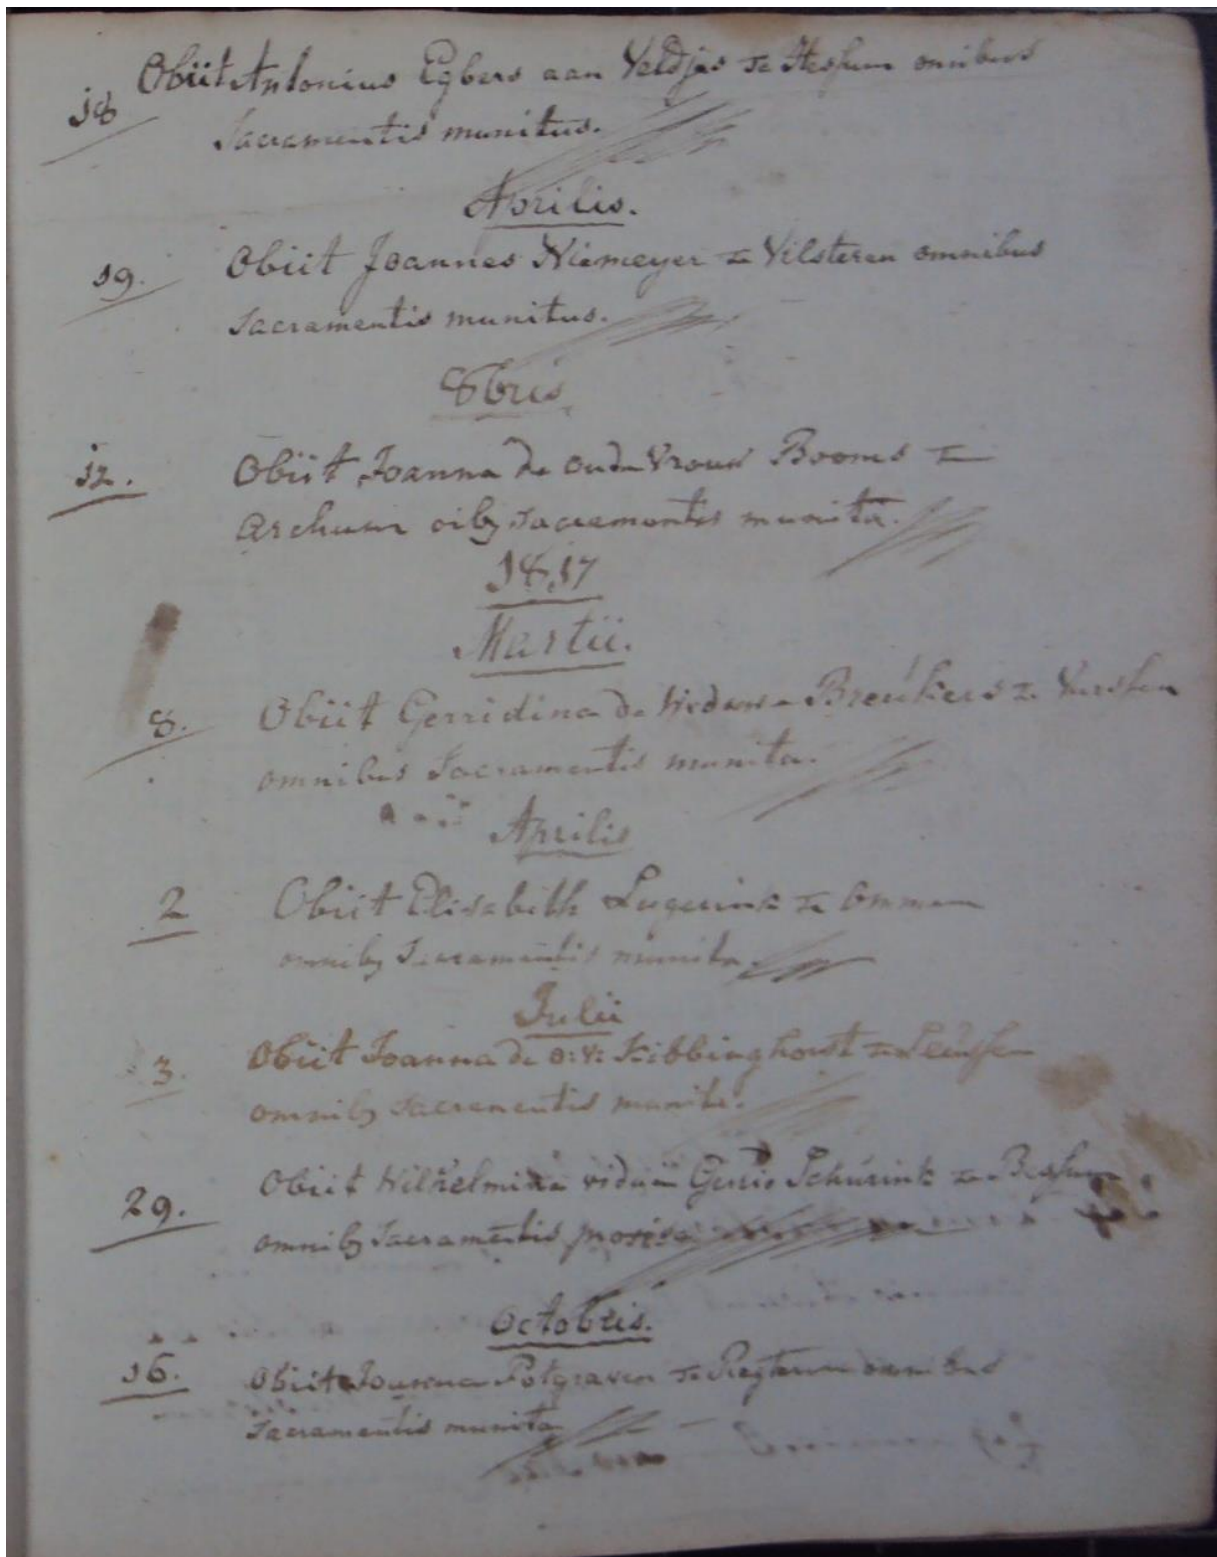 18 Obiit Antonius Egbers aan Veldjes te Hessum omnibus
Sacramentis munitus.
Aprilis.
19. Obiit Joannes Niemeyer te Vilsteren omnibus
Sacramentis munitus.
8bris
12. Obiit Joanna de oude Vrouw Booms te
Archum oibꝫ Sacramentis munita.
1817
Martii.
8. Obiit Gerridina de Weduwe Breukers te
omnibus Sacramentis munita.
Aprilis
2 Obiit Elisabeth te Ommen
omnibꝫ Sacramentis munita.
Julii
3. Obiit Joanna de o: V: Stibbinghorst te Leusen
omnibꝫ Sacramentis munita.
29. Obiit Wilhelmina vidua Schurink te
omnibꝫ Sacramentis
Octobris.
16. Obiit Joanna Potgraven te omnibus
Sacramentis munita